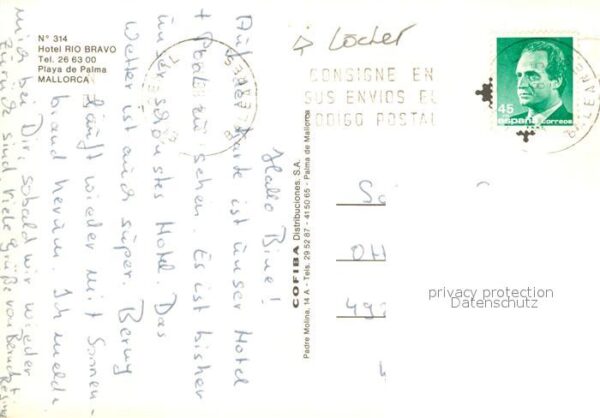 Nº 314
Hotel RIO BRAVO
Tel. 26 63 00
Playa de Palma
MALLORCA
Löcher
CONSIGNE EN
SUS ENVIOS EL
CODIGO POSTAL
BALEARES
45
españa
CORREOS
COFIBA Distribuciones, S.A.
Padre Molina, 14 A - Tels. 29 52 87 - 41 50 65 - Palma de Mallorca
Hallo Bine!
Auf der Karte ist unser Hotel
+ Pool zu sehen. Es ist bisher
unser schönstes Hotel. Das
Wetter ist auch super. Berny
läuft wieder mit Sonnen-
brand herum. Ich melde
mich bei Dir, sobald wir wieder
zurück sind. Viele Grüße von Bernd +
privacy protection
Datenschutz